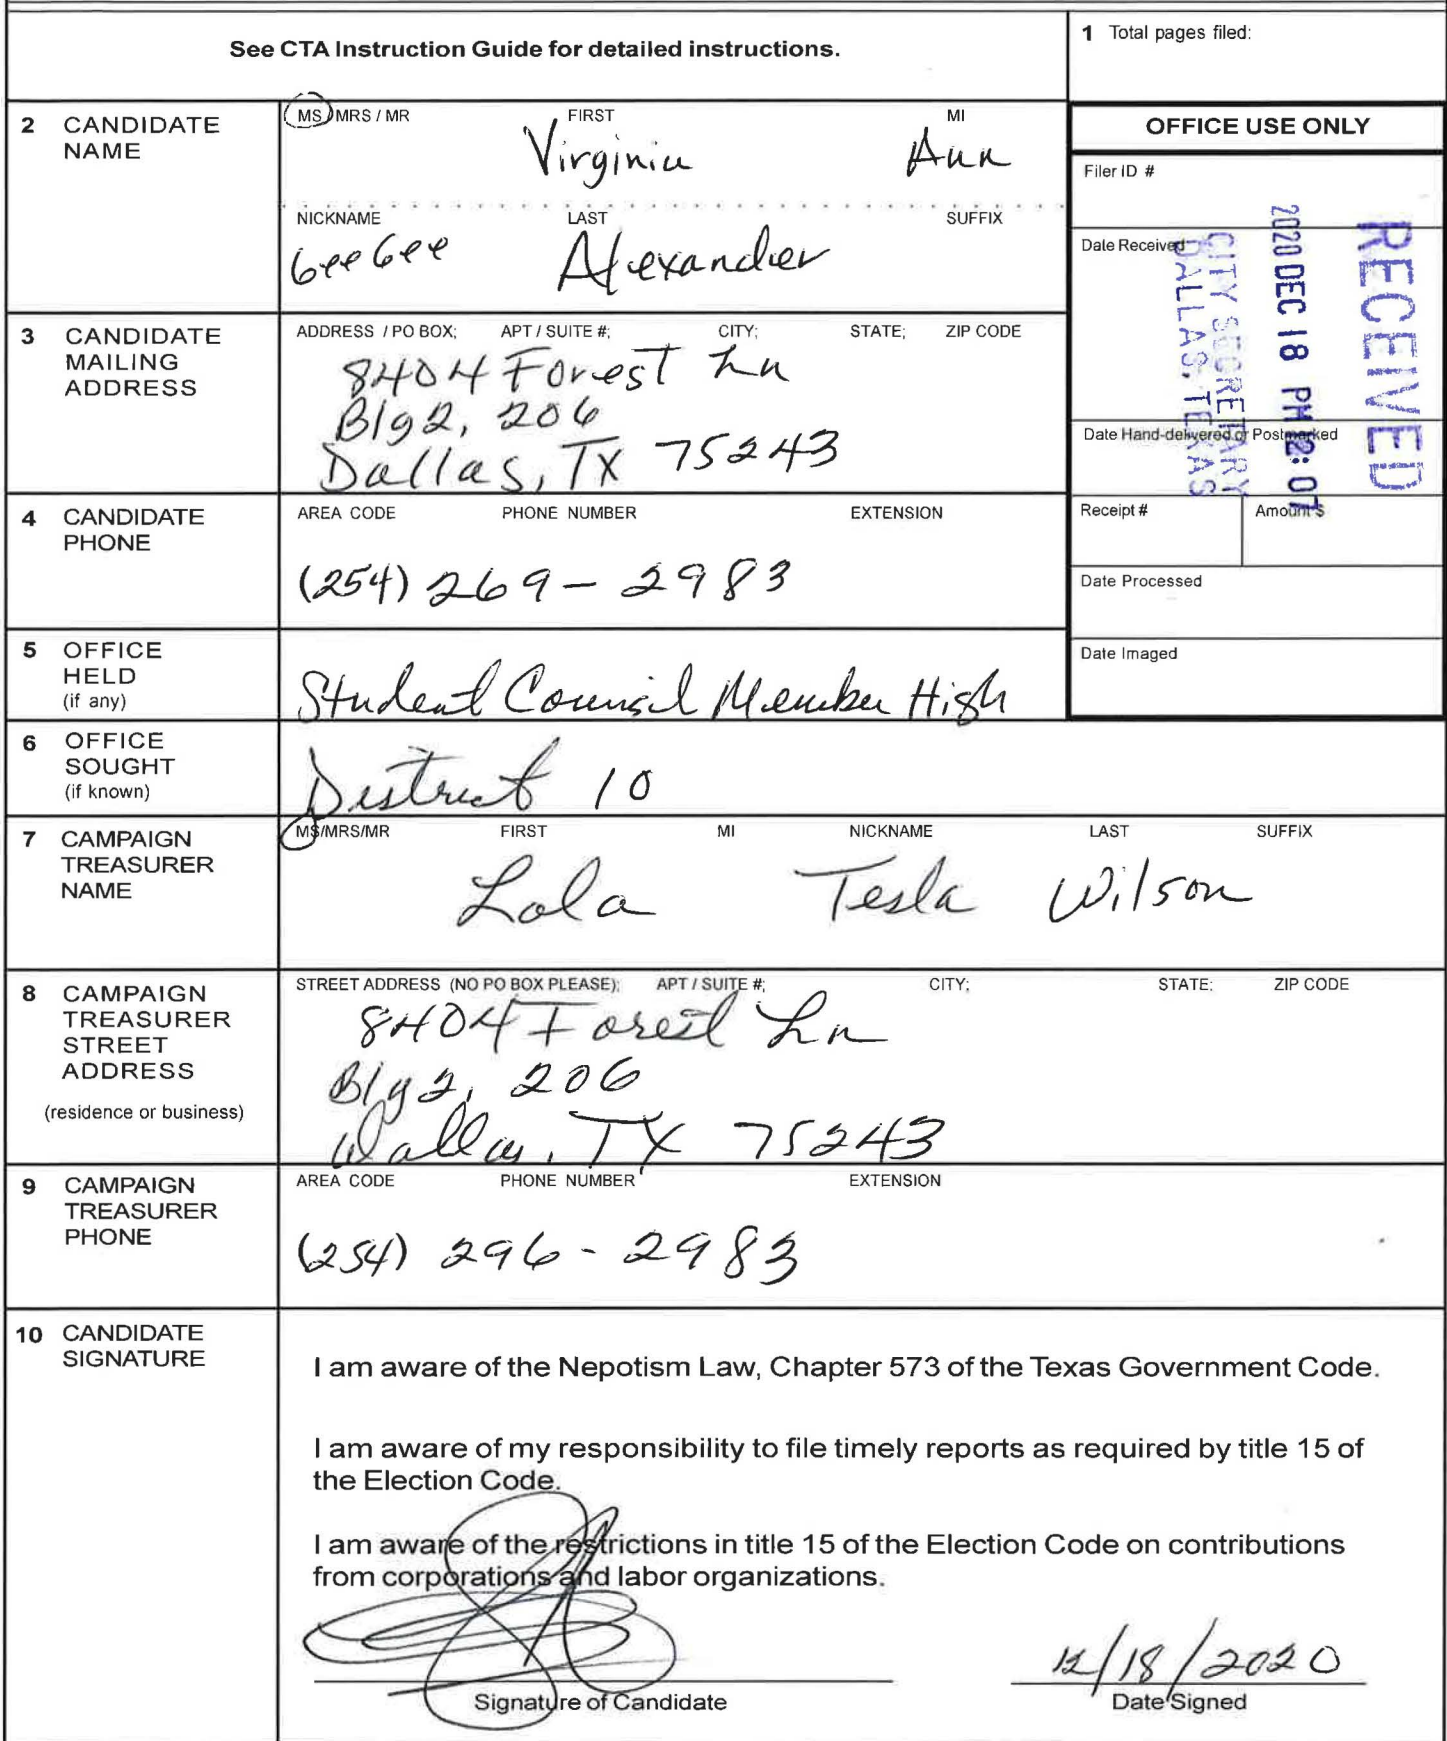 See CTA Instruction Guide for detailed instructions.
1 Total pages filed:
2 CANDIDATE NAME
MS / MRS / MR FIRST MI
Virginia Ann
NICKNAME LAST SUFFIX
GeeGee Alexander
OFFICE USE ONLY
Filer ID #
Date Received
RECEIVED
2020 DEC 18 PM 2:07
CITY SECRETARY
DALLAS, TEXAS
Date Hand-delivered or Postmarked
Receipt # Amount $
Date Processed
Date Imaged
3 CANDIDATE MAILING ADDRESS
ADDRESS / PO BOX; APT / SUITE #; CITY; STATE; ZIP CODE
8404 Forest Ln
Blg 2, 206
Dallas, TX 75243
4 CANDIDATE PHONE
AREA CODE PHONE NUMBER EXTENSION
(254) 269-2983
5 OFFICE HELD (if any)
Student Counsil Member High
6 OFFICE SOUGHT (if known)
District 10
7 CAMPAIGN TREASURER NAME
MS/MRS/MR FIRST MI NICKNAME LAST SUFFIX
Lola Tesla Wilson
8 CAMPAIGN TREASURER STREET ADDRESS
(residence or business)
STREET ADDRESS (NO PO BOX PLEASE); APT / SUITE #; CITY; STATE; ZIP CODE
8404 Forest Ln
Blg 2, 206
Dallas, TX 75243
9 CAMPAIGN TREASURER PHONE
AREA CODE PHONE NUMBER EXTENSION
(254) 296-2983
10 CANDIDATE SIGNATURE
I am aware of the Nepotism Law, Chapter 573 of the Texas Government Code.
I am aware of my responsibility to file timely reports as required by title 15 of
the Election Code.
I am aware of the restrictions in title 15 of the Election Code on contributions
from corporations and labor organizations.
12/18/2020
Signature of Candidate Date Signed